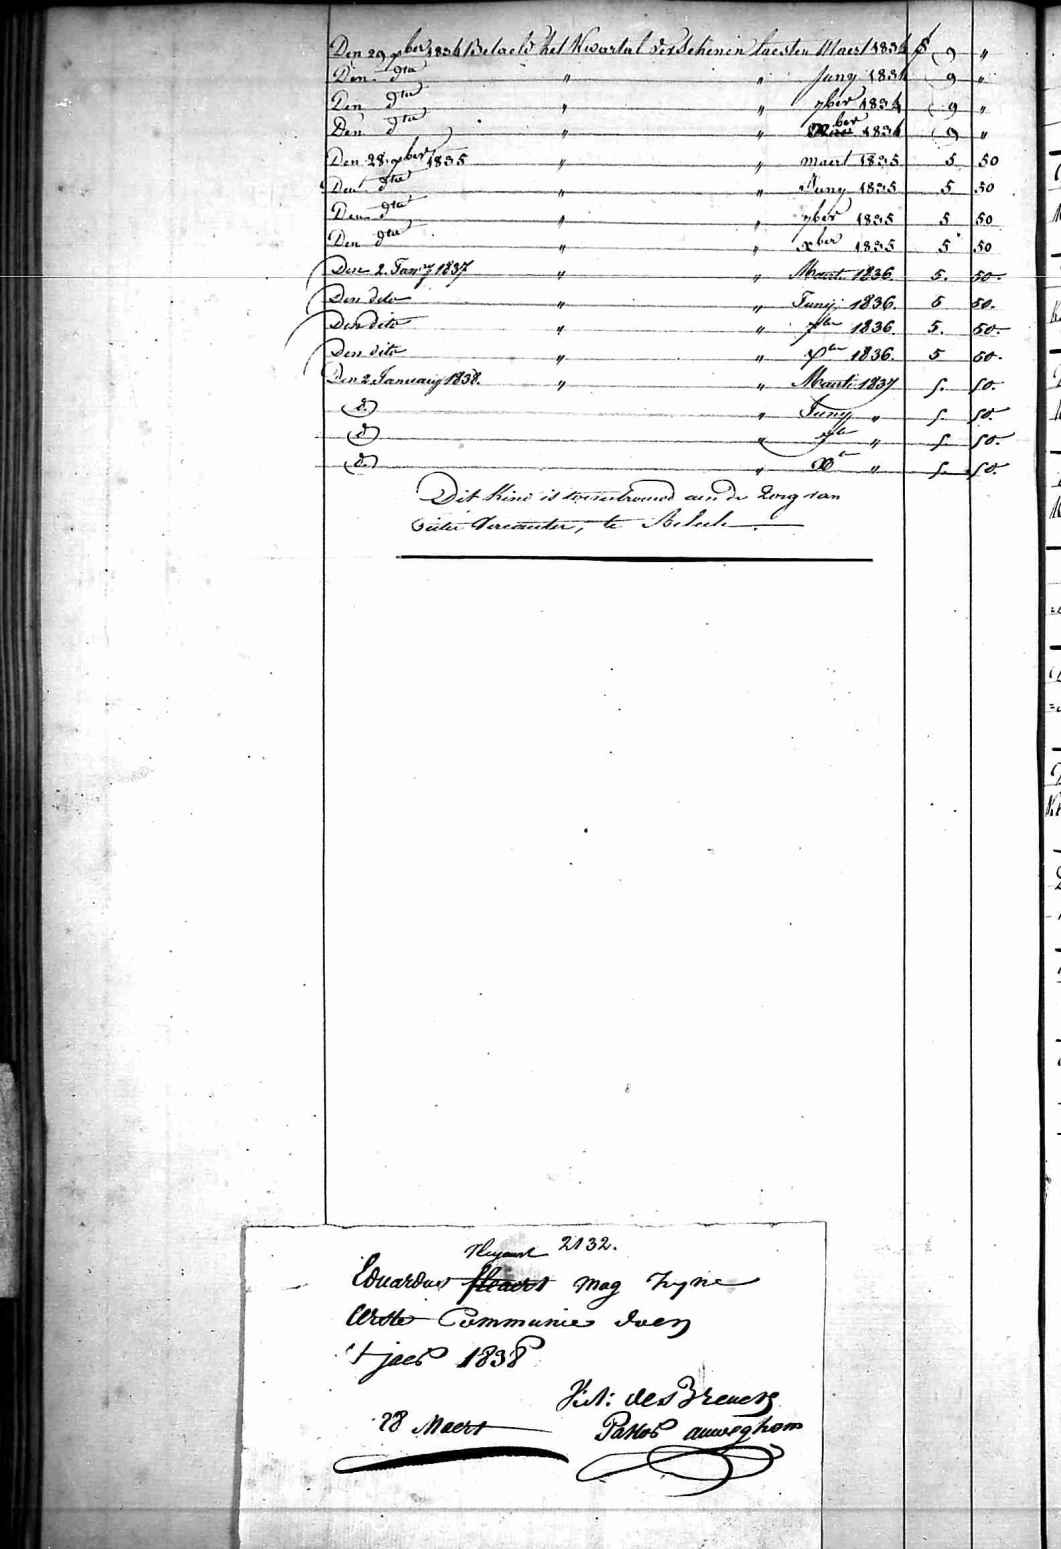 Den 29 xber 1834 Betaeld het Kwartal verschenen laesten Maert 1834 f 9 "
Den dto " " Juny 1834 9 "
Den dto " " 7ber 1834 9 "
Den dto " " xber 1834 9 "
Den 28 xber 1835 " " maert 1835 5 50
Den dto " " Juny 1835 5 50
Den dto " " 7ber 1835 5 50
Den dto " " xber 1835 5 50
Den 2 Janry 1837 " " Maart 1836. 5. 50.
Den dito " " Junij 1836. 5 50.
Den dito " " 7ber 1836. 5. 50.
Den dito " " xber 1836. 5 50.
Den 2 January 1838. " " Maart 1837 5. 50.
d. " Juny " 5. 50.
d. " 7br " 5. 50.
d. " Xr " 5. 50.
Dit Kind is toevertrouwd aen de Zorg van
te
2132.
Eduardus mag zyne
Eerste Communie doen
't jaer 1838
28 Maert
Pastor auweghem